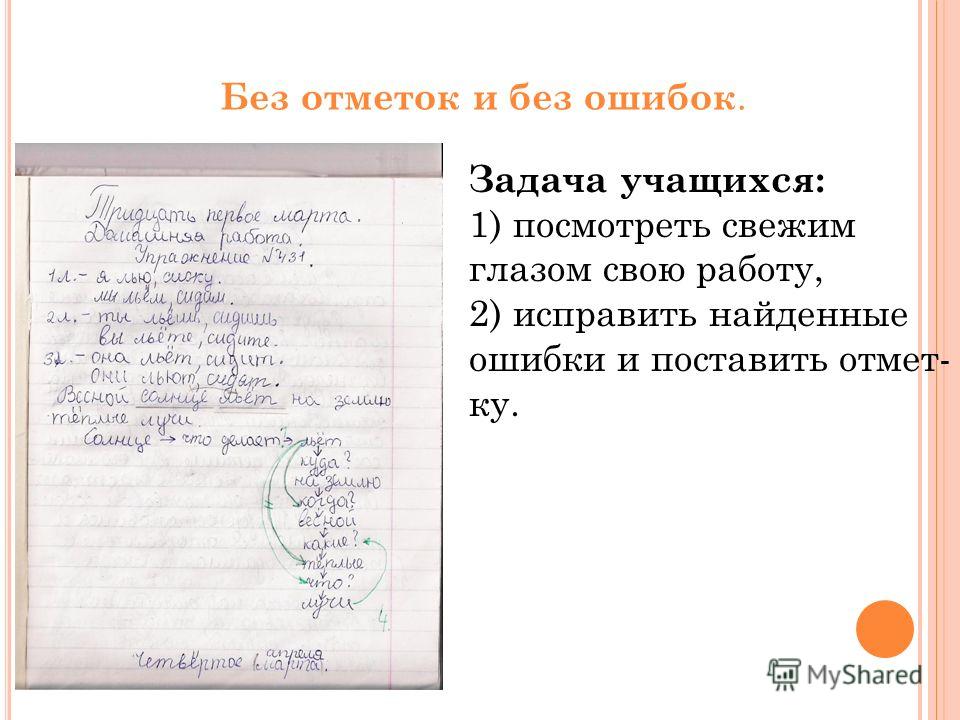 Без отметок и без ошибок.
Тридцать первое марта.
Домашняя работа.
Упражнение №431.
1л.- я лью, сижу.
мы льём, сидим.
2л.- ты льёшь, сидишь
вы льёте, сидите.
3л.- она льёт, сидит.
они льют, сидят.
Весной солнце льёт на землю
тёплые лучи.
Солнце → что делает? → льёт
куда?
на землю
когда?
весной
какие?
тёплые
что?
лучи
4.
апреля
Четвёртое (марта).
Задача учащихся:
1) посмотреть свежим
глазом свою работу,
2) исправить найденные
ошибки и поставить отмет-
ку.
MyShared